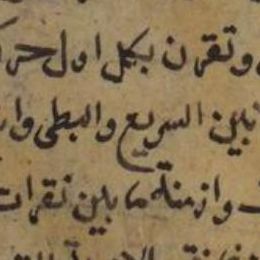 وتقرن بكل اول حر
بين السريع والبطى وا
وازمنة ما بين نقرات